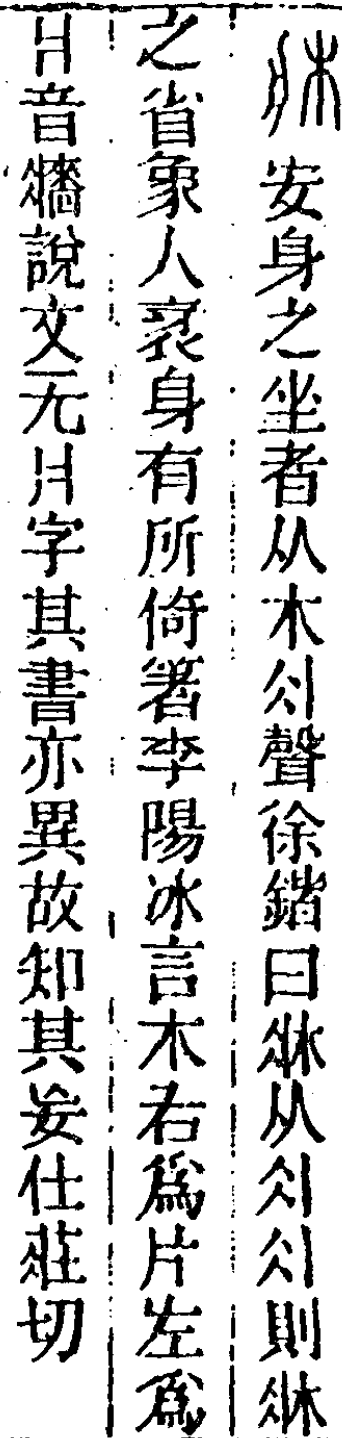 牀 安身之坐者从木爿聲徐鍇曰牀从爿爿則牀
之省象人衺身有所倚箸李陽冰言木右爲片左爲
爿音牆說文无爿字其書亦異故知其妄仕莊切